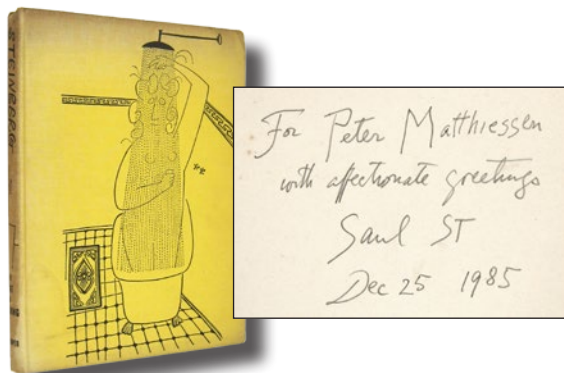 STEINBERG
For Peter Matthiessen
with affectionate greetings
Saul ST
Dec 25 1985